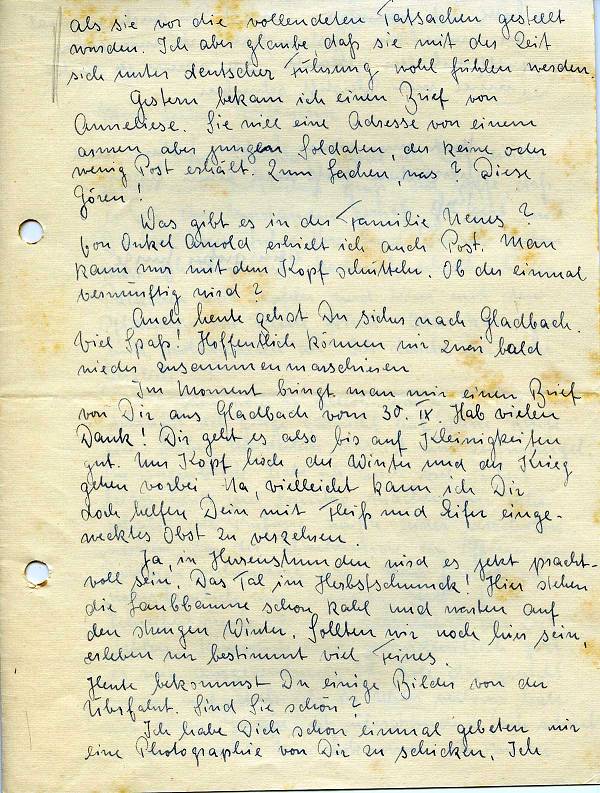 als sie vor die vollendeten Tatsachen gestellt
wurden. Ich aber glaube, daß sie mit der Zeit
sich unter deutscher Führung wohl fühlen werden.
Gestern bekam ich einen Brief von
Anneliese. Sie will eine Adresse von einem
armen aber jungen Soldaten, der keine oder
wenig Post erhält. Zum Lachen, was? Diese
Gören!
Was gibt es in der Familie Neues?
Von Onkel Arnold erhielt ich auch Post. Man
kann nur mit dem Kopf schütteln. Ob der einmal
vernünftig wird?
Auch heute gehst Du sicher nach Gladbach.
Viel Spaß! Hoffentlich können wir zwei bald
wieder zusammenmarschieren
Im Moment bringt man mir einen Brief
von Dir aus Gladbach vom 30. IX. Hab vielen
Dank! Dir geht es also bis auf Kleinigkeiten
gut. Nur Kopf hoch, der Winter und der Krieg
gehen vorbei. Na, vielleicht kann ich Dir
doch helfen Dein mit Fleiß und Eifer einge-
wecktes Obst zu verzehren.
Ja, in wird es jetzt pracht-
voll sein. Das Tal im Herbstschmuck! Hier stehen
die Laubbäume schon kahl und warten auf
den strengen Winter. Sollten wir noch hier sein,
erleben wir bestimmt viel Feines.
Heute bekommst Du einige Bilder von der
Überfahrt. Sind Sie schön?
Ich habe Dich schon einmal gebeten mir
eine Photographie von Dir zu schicken. Ich